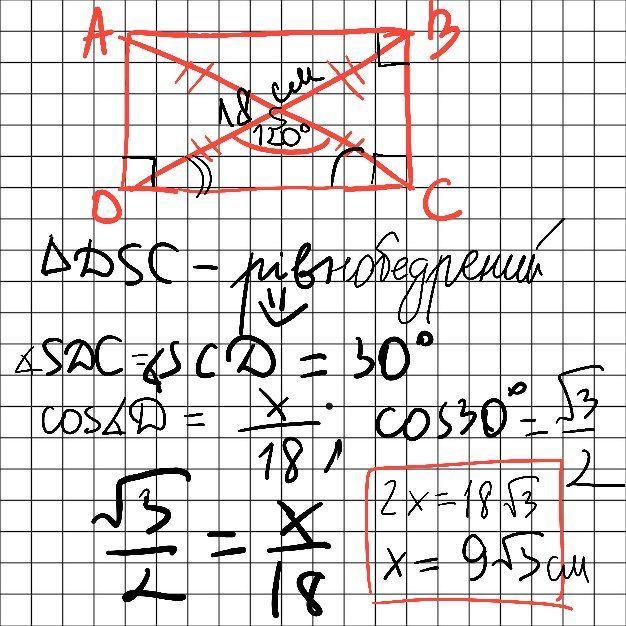 A B
18 см
S
120°
D C
ΔDSC - рівнобедрений
⇓
∡SDC = ∡SCD = 30°
cos∡D = x/18, cos30° = √3/2
√3/2 = x/18
2x = 18√3
x = 9√3 см